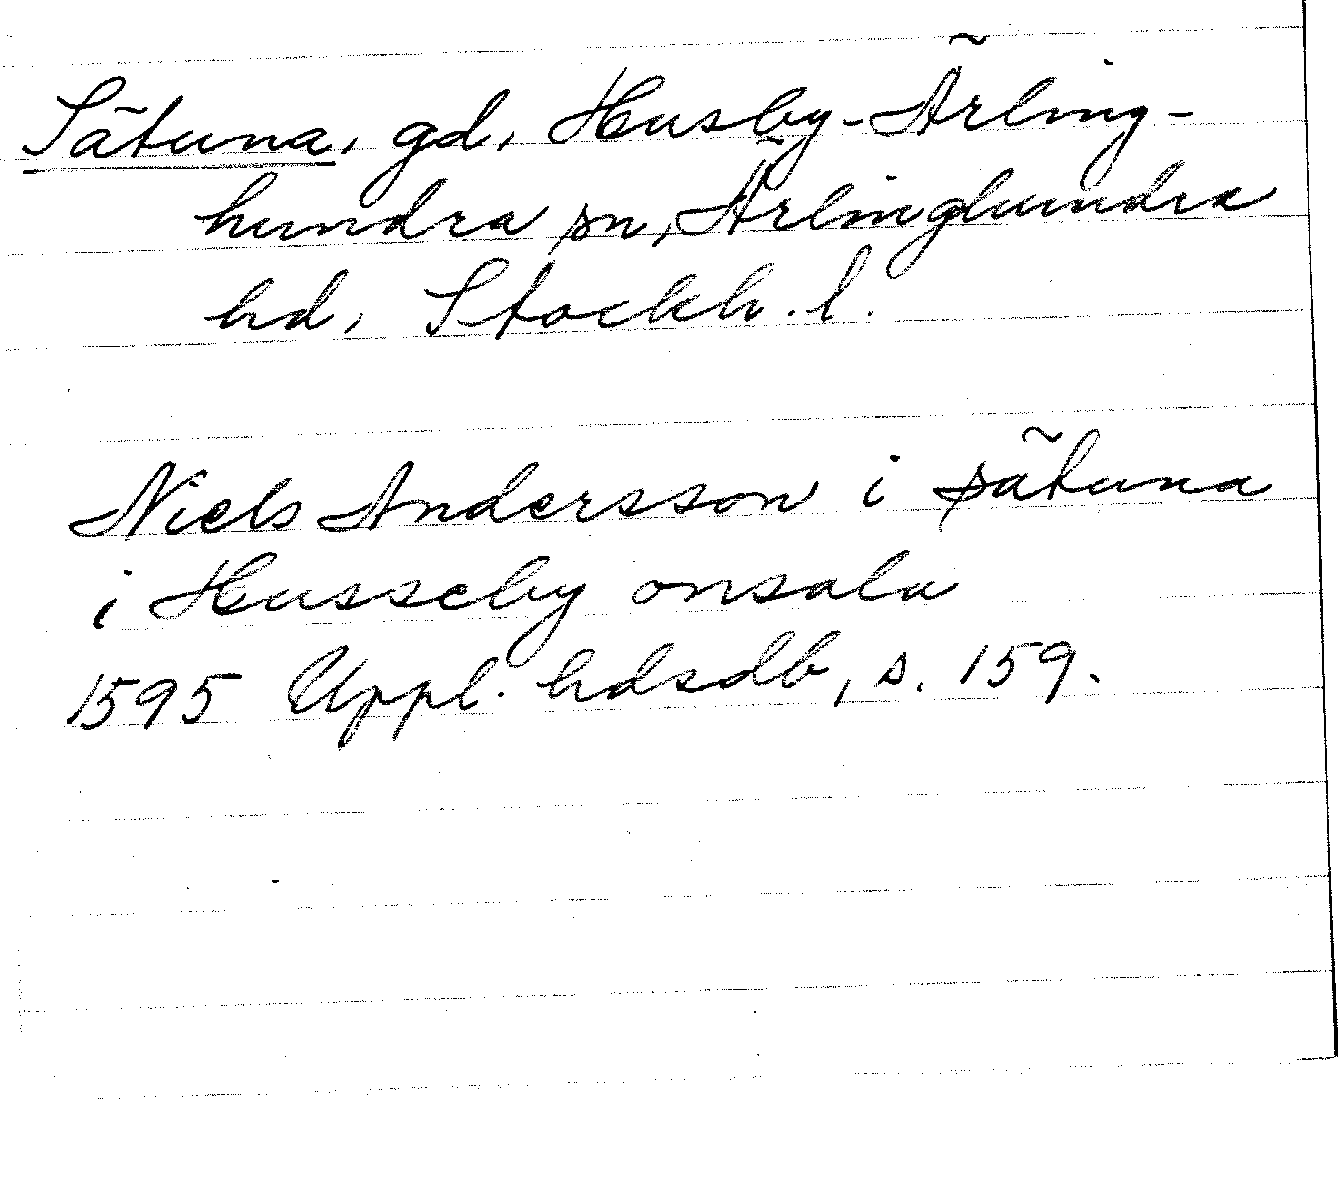 Sätuna, gd, Husby-Ärling-
hundra sn, Ärlinghundra
hd, Stockh. l.
Niels Andersson i sätuna
i Husseby onsala
1595 Uppl. hdsdb, s. 159.